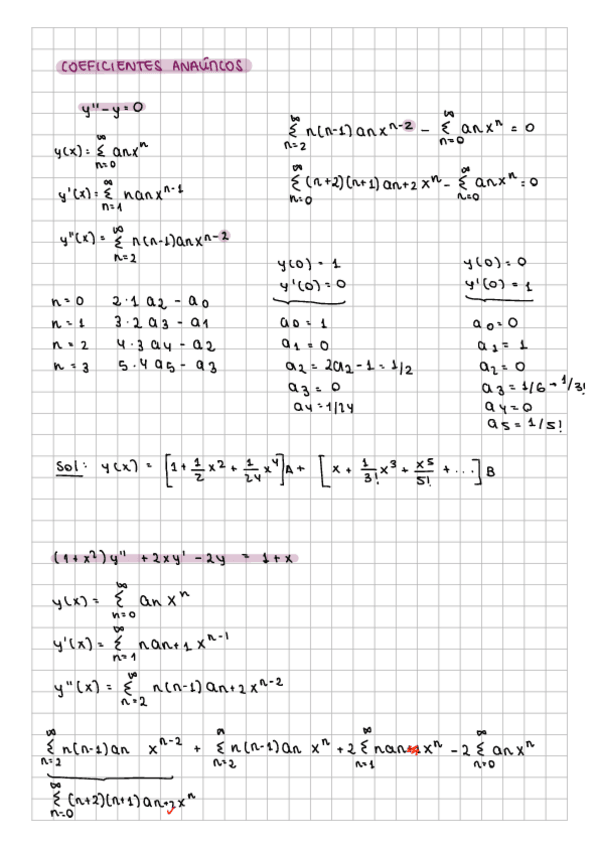 COEFICIENTES ANALÍTICOS
y'' - y = 0
y(x) = ∞ Σ n=0 anxⁿ
y'(x) = ∞ Σ n=1 nanxⁿ⁻¹
y''(x) = ∞ Σ n=2 n(n-1)anxⁿ⁻²
∞ Σ n=2 n(n-1)anxⁿ⁻² - ∞ Σ n=0 anxⁿ = 0
∞ Σ n=0 (n+2)(n+1)an+2 xⁿ - ∞ Σ n=0 anxⁿ = 0
n = 0 2·1 a2 - a0
n = 1 3·2 a3 - a1
n = 2 4·3 a4 - a2
n = 3 5·4 a5 - a3
y(0) = 1
y'(0) = 0
a0 = 1
a1 = 0
a2 = 2a2 - 1 = 1/2
a3 = 0
a4 = 1/24
y(0) = 0
y'(0) = 1
a0 = 0
a1 = 1
a2 = 0
a3 = 1/6 → 1/3!
a4 = 0
a5 = 1/5!
Sol: y(x) = [1 + 1/2 x² + 1/24 x⁴]A + [x + 1/3! x³ + x5/5! + ...]B
(1+x²)y'' + 2xy' - 2y = 1+x
y(x) = ∞ Σ n=0 an xⁿ
y'(x) = ∞ Σ n=1 nan+1 xⁿ⁻¹
y''(x) = ∞ Σ n=2 n(n-1)an+2 xⁿ⁻²
∞ Σ n=2 n(n-1)an xⁿ⁻² + n Σ n=2 n(n-1)an xⁿ + 2 ∞ Σ n=1 nan+1xⁿ - 2 ∞ Σ n=0 anxⁿ
∞ Σ n=0 (n+2)(n+1)an+2xⁿ